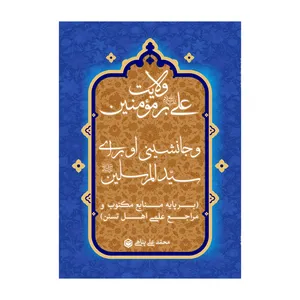 ولایت
علی بر مؤمنین
و جانشینی او برای
سید المرسلین
(بر پایه منابع مکتوب و
مراجع علمی اهل تسنن)
محمد علی